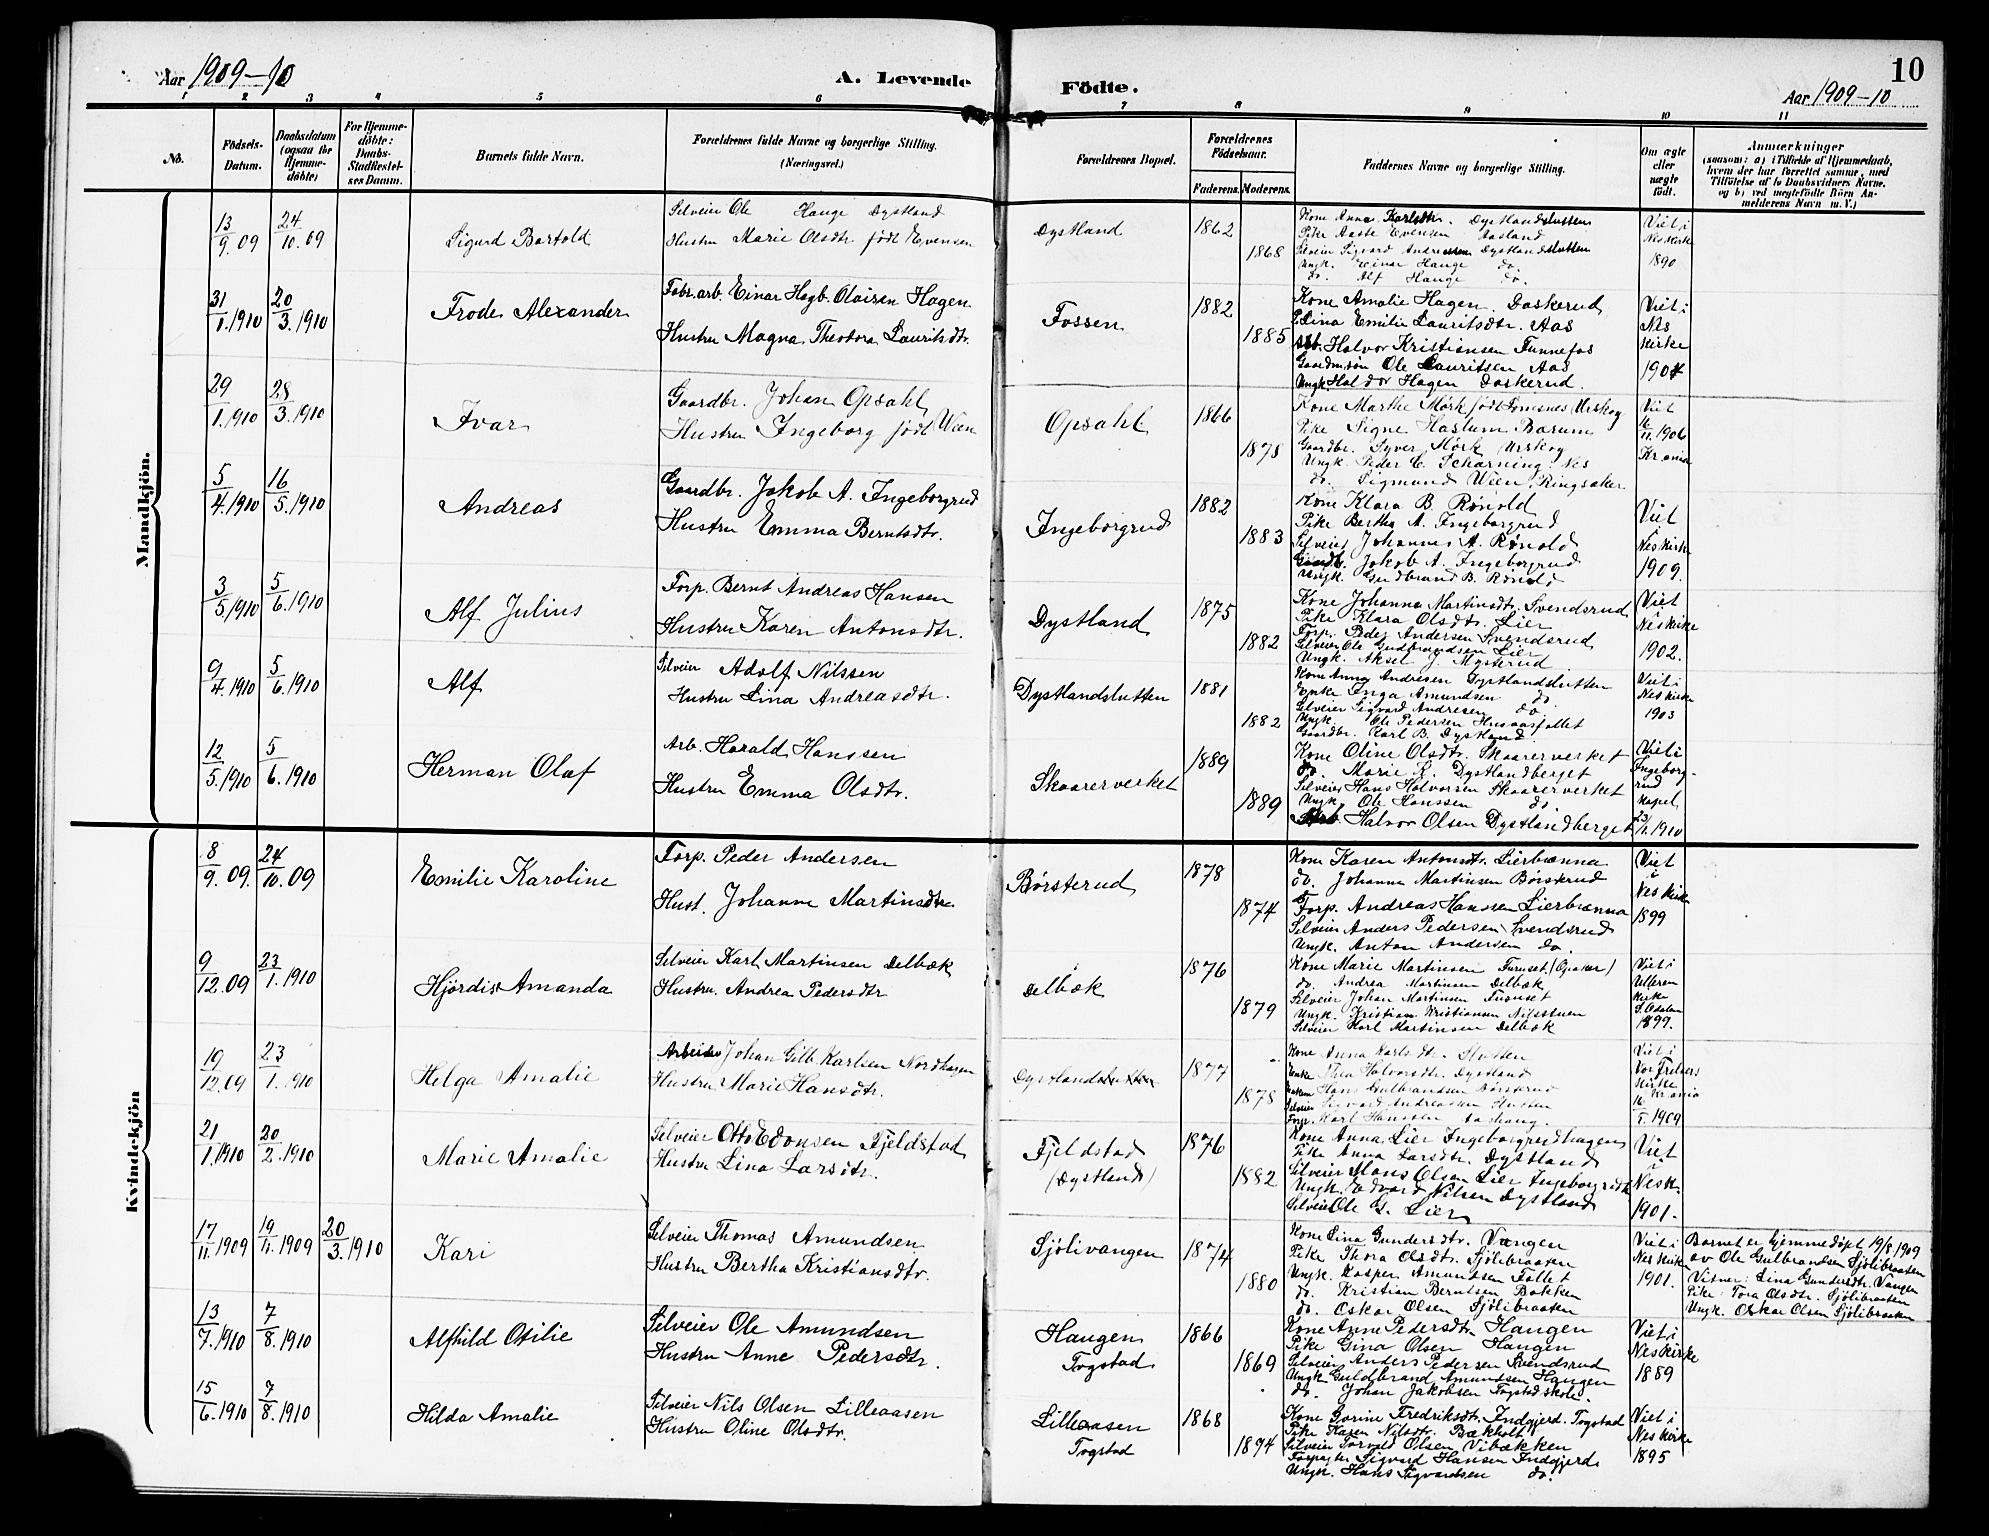 10
Aar 1909-10
A. Levende Födte.
Aar 1909-10
1 2 3 4 5 6 7 8 9 10 11
No.
Födsels-
Datum.
Daabsdatum
(ogsaa for
Hjemme-
döbte)
For Hjemme-
döbte:
Daabs-
Stadfæstel-
ses Datum.
Barnets fulde Navn.
Forældrenes fulde Navne og borgerlige Stilling.
(Næringsvei.)
Forældrenes Bopæl.
Forældrenes
Födselsaar.
Faderens. Moderens.
Faddernes Navne og borgerlige Stilling.
Om ægte
eller
uægte
født.
Anmærkninger
(saasom: a) i Tilfælde af Hjemmedaab,
hvem der har forrettet samme, med
Tilföielse af to Daabsvidners Navne.
og b) ved uægtefödte Börn An-
melderens Navn m.V.)
Mandkjön.
13/9.09 24/10.09 Sigurd Bartold
Selveier Ole Hauge Dystland
Hustru Marie Olsdtr. født Evensen
Dystland 1862 1868
Kone Anna Karlsdtr. Dystlandslutten
Pike Aaste Evensen Aasland
Selveier Sigvard Andreassen Dystlandslutten
Ungk. Einar Hauge do.
do. Alf Hauge do.
Viet i
Nes kirke
1890
31/1.1910 20/3.1910 Frode Alexander
Fabr.arb. Einar Hagb. Olaisen Hagen
Hustru Magna Theodora Lauritsdtr.
Fossen 1882 1885
Kone Amalie Hagen Daskerud
P. Lina Emilie Lauritsdtr. Aas
Arb. Halvor Kristiansen Funnefos
Gaardm.søn Ole Lauritsen Aas
Ungk. Haldor Hagen Daskerud.
Viet i
Nes
kirke
1904
29/1.1910 28/3.1910 Ivar
Gaardbr. Johan Opsahl
Hustru Ingeborg født Wien
Opsahl 1866 1878
Kone Marthe Mørk født Somsnes Urskog
Pike Signe Haslum Bærum
Gaardbr. Syver Mørk Urskog
Ungk. Peder C. Scharning. Nes
do. Sigmund Wien, Ringsaker
Viet
16/11.1906
Kr.ania
5/4.1910 16/5.1910 Andreas
Gaardbr. Jakob A. Ingeborgrud
Hustru Emma Berntsdtr.
Ingeborgrud 1882 1883
Kone Klara B. Rønold
Pike Bertha A. Ingeborgrud
Selveier Johannes A. Rønold
Gaardb. Jakob A. Ingeborgrud
Ungk. Gudbrand B. Rønold
Viet
i
Nes kirke
1909.
3/5.1910 5/6.1910 Alf Julius
Forp. Bernt Andreas Hansen
Hustru Karen Antonsdtr.
Dystland 1875 1882
Kone Johanne Martinsdtr. Svendsrud
Pike Klara Olsdtr. Lier
Forp. Peder Andersen Svendsrud
Selveier Ole Gudbrandsen Lier
Ungk. Aksel J. Mysterud
Viet
i
Nes kirke
1902.
9/4.1910 5/6.1910 Alf
Selveier Adolf Nilssen
Hustru Lina Andreasdtr.
Dystlandslutten 1881 1882
Kone Anna Andresen Dystlandslutten
Enke Inga Amundsen do
Selveier Sigvard Andresen do
Ungk. Ole Pedersen Husaasfallet
Gaardbr. Karl B. Dystland
Viet i
Nes kirke
1903
12/5.1910 5/6.1910 Herman Olaf
Arb. Harald Hanssen
Hustru Emma Olsdtr.
Skaarerverket 1889 1889
Kone Oline Olsdtr. Skaarerverket
do. Marie K. Dystlandberget
Selveier Hans Halvorsen Skaarerverket
Ungk. Ole Hanssen do
Arb. Halvor Olsen Dystlandberget
Viet i
Ingeborg-
rud
kapel
1910
Kvindekjön
8/9.09. 24/10.09 Emilie Karoline
Forp. Peder Andersen
Hust. Johanne Martinsdtr.
Børsterud 1878 1874
Kone Karen Antonsdtr. Lierbrænna
do. Johanne Martinsen Børsterud
Forp. Andreas Hanssen Lierbrænna
Selveier Anders Pedersen Svendsrud
Ungk. Anton Andersen do.
Viet
i
Nes kirke
1899
9/12.09 23/1.1910 Hjørdis Amanda
Selveier Karl Martinsen Delbæk
Hustru. Andrea Pedersdtr
Delbæk 1876 1879
Kone Marie Martinsen Furuset (Opaker)
do. Andrea Martinsen Delbæk
Selveier Johan Martinsen Furuset
Ungk. Kristian Kristiansen Nilsstuen
Selveier Karl Martinsen Delbæk
Viet i
Ulleren
kirke
S. Odalen
1899.
19/12.09 23/1.1910 Helga Amalie
Arbeider Johan Gilb. Karlsen Nordhagen
Hustru Marie Hansdtr.
Dystlandslutten 1877 1878
Kone Anna Karlsdtr. Slutten
Enke Thea Halvorsdtr. Dystland
Enkem. Hans Gulbrandsen Børsterud
Selveier Sigvard Andreassen Slutten
Forp. Karl Hanssen
Viet i
Vor Frelsers
kirke
Kr.ania
1909
21/1.1910 20/2.1910 Marie Amalie
Selveier Otto Edonsen Fjeldstad
Hustru Lina Larsdtr.
Fjeldstad
(Dystland) 1876 1882
Kone Anna Lier Ingeborgrudhagen
Pike Anna Larsdtr. Dystland
Selveier Mons Olsen Lier Ingeborgrudh.
Ungk. Edvard Nilsen Dystland
Selveier Ole G. Lier
Viet
i
Nes k.
1901.
17/11.1909 19/11.1909 20/3.1910 Kari
Selveier Thomas Amundsen
Hustru Bertha Kristiansdtr.
Sjölivangen 1874 1880
Kone Lina Gundersdtr. Vangen
Pike Thora Olsdtr. Sjölibraaten
Ungk. Kasper Amundsen Fallet
do. Kristian Berntsen Bakken
do. Oskar Olsen Sjölibraaten
Viet i
Nes kirke
1901.
Barnet er hjemmedøpt 19/8 1909
av Ole Gulbrandsen Sjölibraaten
Vitner: Lina Gundersdtr. Vangen
Pike Tora Olsdtr. Sjölibraaten
Ungk. Oskar Olsen Sjölibraaten
13/7.1910 7/8.1910 Alfhild Otilie
Selveier Ole Amundsen
Hustru Anne Pedersdtr.
Haugen
Togstad 1866 1869
Kone Anne Pedersdtr. Haugen
Pike Gina Olsen Haugen
Selveier Anders Pedersen Svendsrud
Ungk. Guldbrand Amundsen Haugen
do. Johan Jakobsen Togstad skole
Viet i
Nes kirke
1889
15/6.1910 7/8.1910 Hilda Amalie
Selveier Nils Olsen Lilleaasen
Hustru Oline Olsdtr.
Lilleaasen
Togstad 1868 1874
Kone Gorine Fredriksdtr. Indgjerd. Togstad
Pike Karen Nilsdtr. Bækholt
Selveier Torvald Olsen Vibækken
Forpagter Sigvard Hansen Indgjerd.
Ungk. Hans Sigvardsen do.
Viet i
Nes kirke
1895